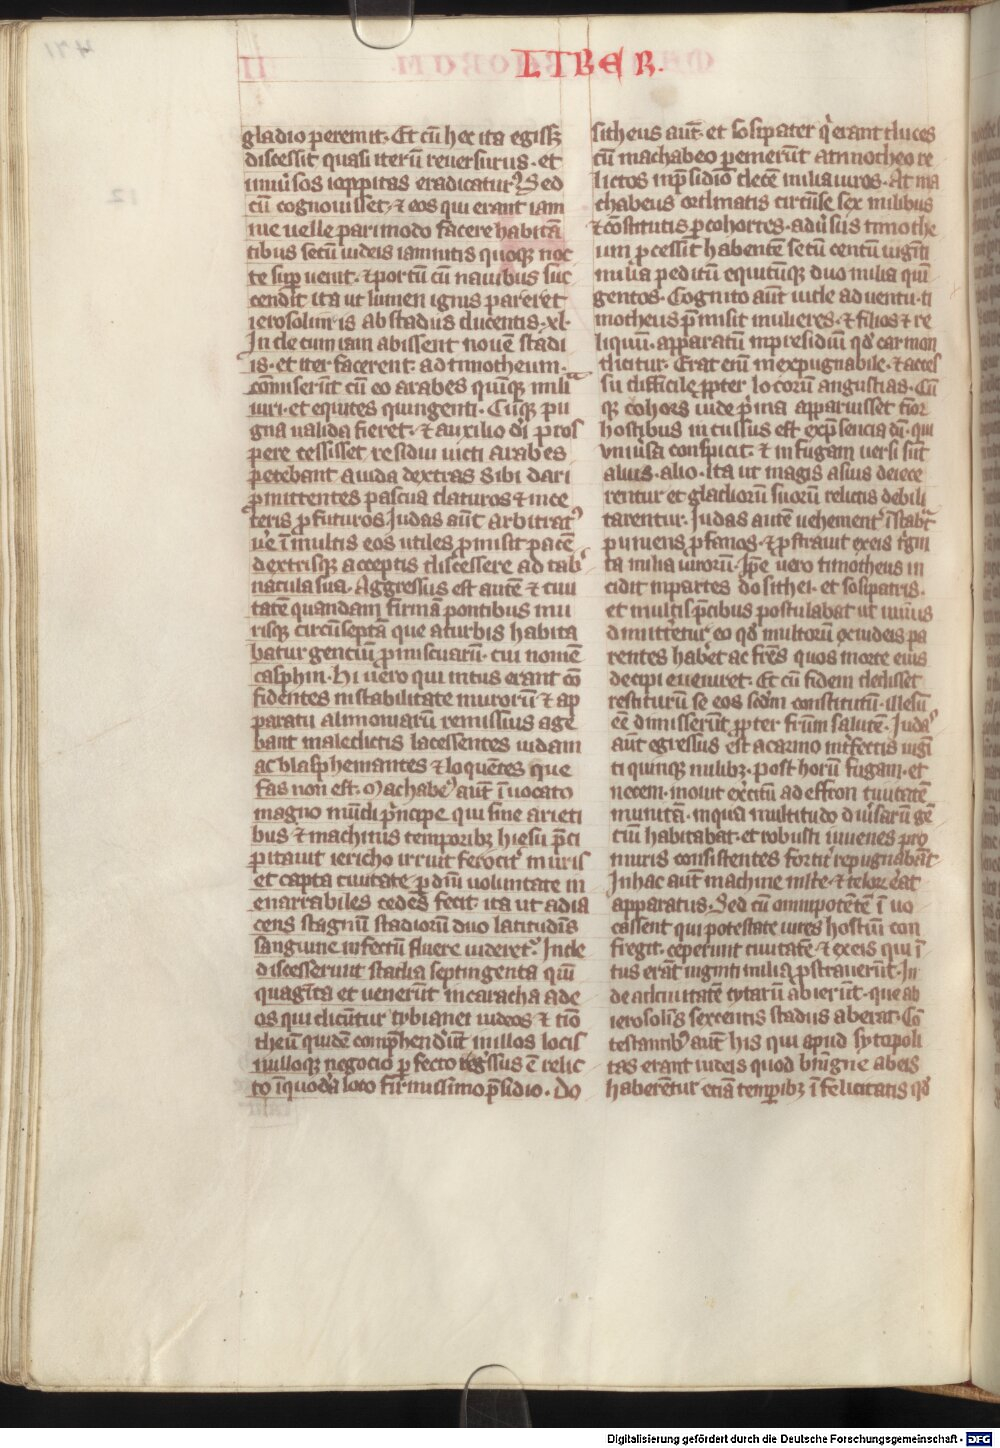 LIBER.
gladio peremit. Et cū hec ita egissꝫ
discessit quasi iterū reuersurus. et
uniūsos ioppitas eradicaturꝰ Sed
cū cognouisset. ⁊ eos qui erant iam
nie uelle pari modo facere habitā
tibus secū iudeis iamnitis quoqꝫ noc
te sup uenit. ⁊ portū cū nauibus suc
cendit ita ut lumen ignis pareret
ierosolimis ab stadiis ducentis. xl.
In de cum iam abissent nouē stadi
is. et iter facerent. ad timotheum.
cōmiserūt cū eo arabes quīqꝫ mili
uiri. et equites quingenti. Cūqꝫ pu
gna ualida fieret. ⁊ auxilio dī pros
pere cessisset residui uicti arabes
petebant a iuda dextras sibi dari
promittentes pascua daturos ⁊ in ce
teris profuturos Judas aūt arbitratꝰ
ue ī multis eos utiles promisit pacē
dextrisqꝫ acceptis discessere ad tab
nacula sua. Aggressus est autē ⁊ ciui
tatē quandam firmā pontibus mu
risqꝫ circūseptā que a turbis habita
batur gentiū promiscuarū. cui nomē
casphin. Hi uero qui intus erant cō
fidentes in stabilitate murorū ⁊ ap
paratu alimoniarū remissius age
bant maledictis lacessentes iudam
ac blasphemantes ⁊ loquētes que
fas non est. Machabeꝰ aūt īuocato
magno mūdi pricipe qui sine arieti
bus ⁊ machinis temporibꝫ hiesu p̄ci
pitauit iericho irruit ferocit muris
et capta ciuitate p dn̄i uoluntate in
enarrabiles cedes fecit ita ut adia
cens stagnū stadiorū duo latitudīs
sanguine infectū fluere uideretꝰ. Inde
discesserunt stadia septingenta quī
quagīta et uenerūt in caracha ad e
os qui dicūtur tybianei iudeos ⁊ tio
theū quidē comprehendūt in illos locis
nulloqꝫ negocio perfecto regssus ē relic
to ī quodā loco firmissimo p̄sidio. Do
sitheus aūt. et sosipater q erant duces
cū machabeo pemerūt a timotheo re
lictos in p̄sidio decē milia uiros. At ma
chabeus ordinatis circūse sex milibus
⁊ cōstitutis per cohortes. aduersus timothe
um processit habentē secū centū uigīti
milia peditū equitūqꝫ duo milia quī
gentos. Cognito aūt iude aduentu. ti
motheus p̄misit mulieres. ⁊ filios ⁊ re
liquū. apparatū in presidiū qd carnion
dicitur. Erat eni inexpugnabile. ⁊ acces
su difficile ꝓpter locorū angustias. Cū
qꝫ cohors iude prima apparuisset timor
hostibus incussus est ex p̄sencia dī. qui
uniūsa conspicit. ⁊ in fugam uersi sūt
alius. alio. ita ut magis a suis deiece
rentur et gladiorū suorū relictis debili
tarentur. Iudas autē uehement īstabt
puniens pfanos. ⁊ pstrauit ex eis trigin
ta milia uirorū. Ipe uero timotheus in
cidit in partes dosithei. et sosipatris.
et multis p̄cibus postulabat ut uiuus
dimitteretur eo qd multorū ex iudeis pa
rentes haberet ac fr̄es quos morte eius
decipi eueniret. Et cū fidem dedisset
restiturū se eos scdm constitutū. illesū
eē dimisserūt ꝓpter fr̄um salutē. Judaꝰ
aūt egressus est a carnio interfectis uigī
ti quinqꝫ milibꝫ. Post horū fugam. et
necem. mouit exercitū ad effron ciuitatē
munitā. in qua multitudo diuersarū gē
tiū habitabat. et robusti iuuenes pro
muris consistentes fortit repugnabāt
In hac aūt machine multe. ⁊ telorū erat
apparatus. Sed cū omnipotētē īuo
cassent qui potestate uires hostiū con
fregit. ceperunt ciuitatē ⁊ ex eis qui ī
tus erāt uiginti milia pstrauerūt. In
de ad ciuitatē cytarū abierūt. que ab
ierosolīs sexcentis stadiis aberat. Cō
testantibꝰ aūt his qui apud sytopoli
tas erant iudeis quod benigne ab eis
haberētur etiā temporibꝫ īfelicitatis qd
Digitalisierung gefördert durch die Deutsche Forschungsgemeinschaft - DFG